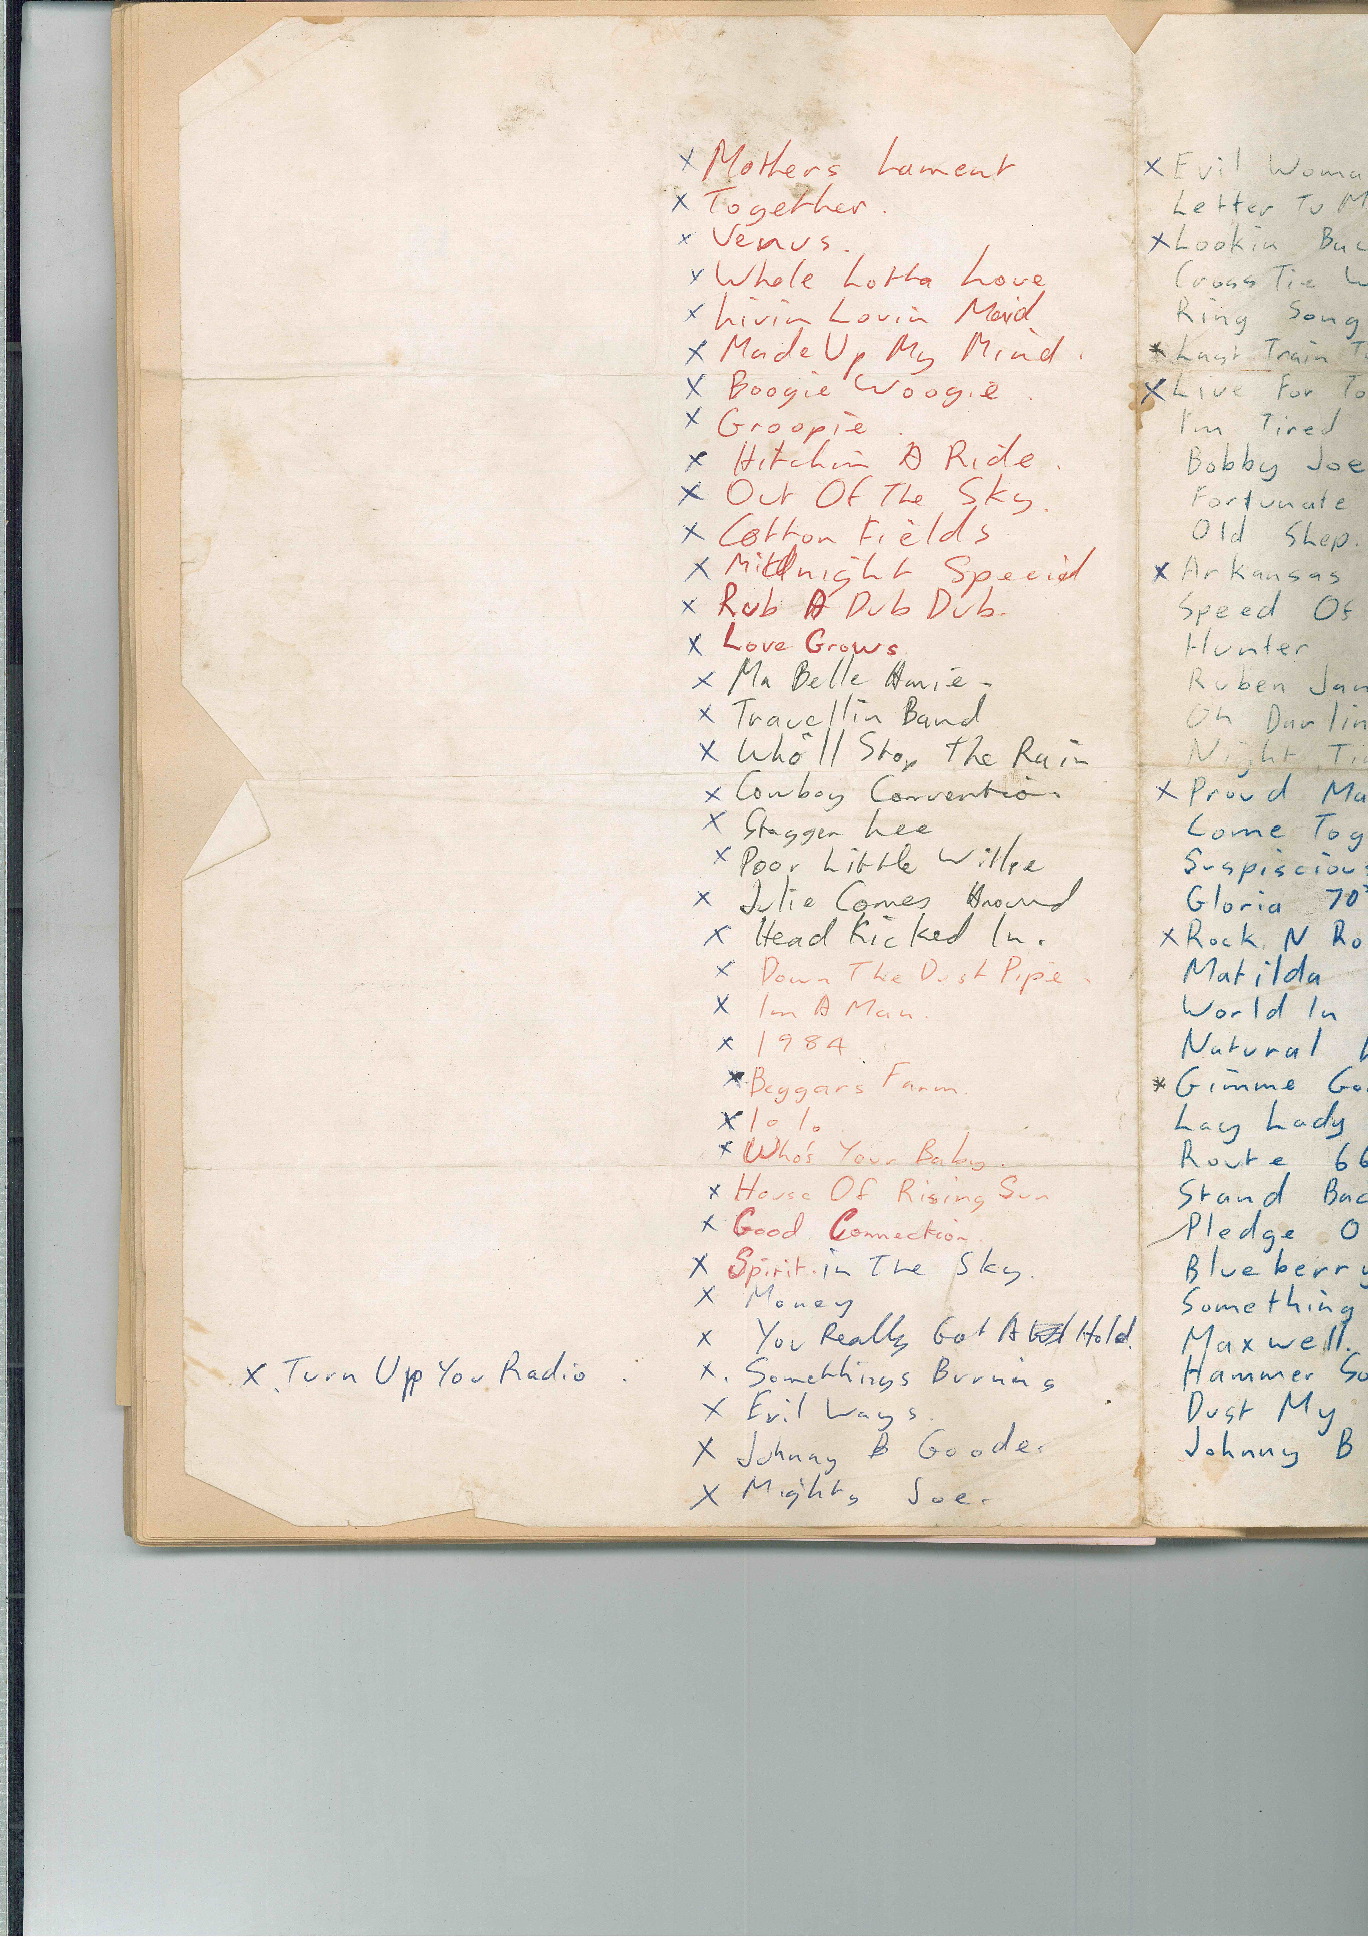 x Turn Upp You Radio
x Mothers Lament
x Together.
x Venus.
x Whole Lotta Love
x Livin Lovin Maid
x Made Up My Mind.
x Boogie Woogie.
x Groopie
x Hitchin A Ride.
x Out Of The Sky.
x Cotton Fields
x Midnight Special
x Rub A Dub Dub.
x Love Grows
x Ma Belle Amie-
x Travellin Band
x Who'll Stop The Rain
x Cowboy Convention.
x Stagger Lee
x Poor Little Willie
x Julie Comes Around
x Head Kicked In.
x Down The Dust Pipe.
x Im A Man.
x 1984
x Beggars Farm.
x
x Who's Your Baby.
x House Of Rising Sun
x Good Connection
x Spirit in The Sky.
x Money
x You Really Got A Hold.
x. Somethings Burning
x Evil Ways.
x Johnny B Goode.
x Mighty Joe.
x Evil Woma
Letter To M
x Lookin Bac
Cross Tie W
Ring Song
x Last Train T
x Live For To
I'm Tired
Bobby Joe
Fortunate
Old Shep.
x Arkansas
Speed Of
Hunter
Ruben Jam
Oh Darlin
Night Ti
x Proud Ma
Come Tog
Suspiscious
Gloria 70
x Rock N Ro
Matilda
World In
Natural
x Gimme Go
Lay Lady
Route 66
Stand Bac
Pledge O
Blueberry
Something
Maxwell.
Hammer So
Dust My
Johnny B